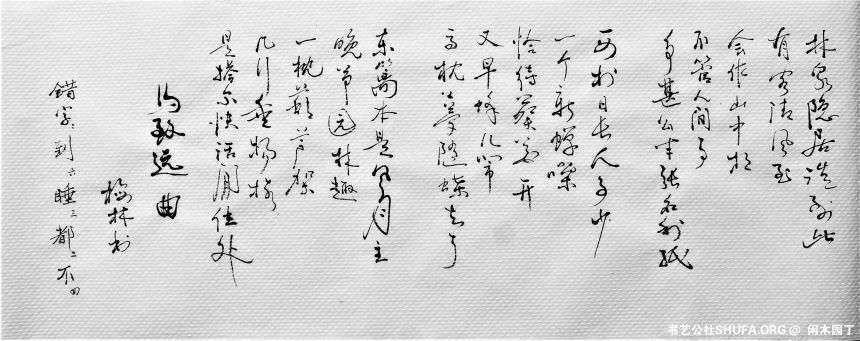 林泉隐居谁到此
有客清风至
会作山中相
不管人间事
争甚么半张名利纸
西村日长人事少
一个新蝉噪
恰待葵花开
又早蜂儿闹
高枕梦随蝶去了
东篱本是风月主
晚节园林趣
一枕葫芦架
几行垂杨树
是搭尔快活闲住处
马致远曲
梅林书
错字到六睡三都二不四
书艺公社SHUFA.ORG @ 闲木园丁